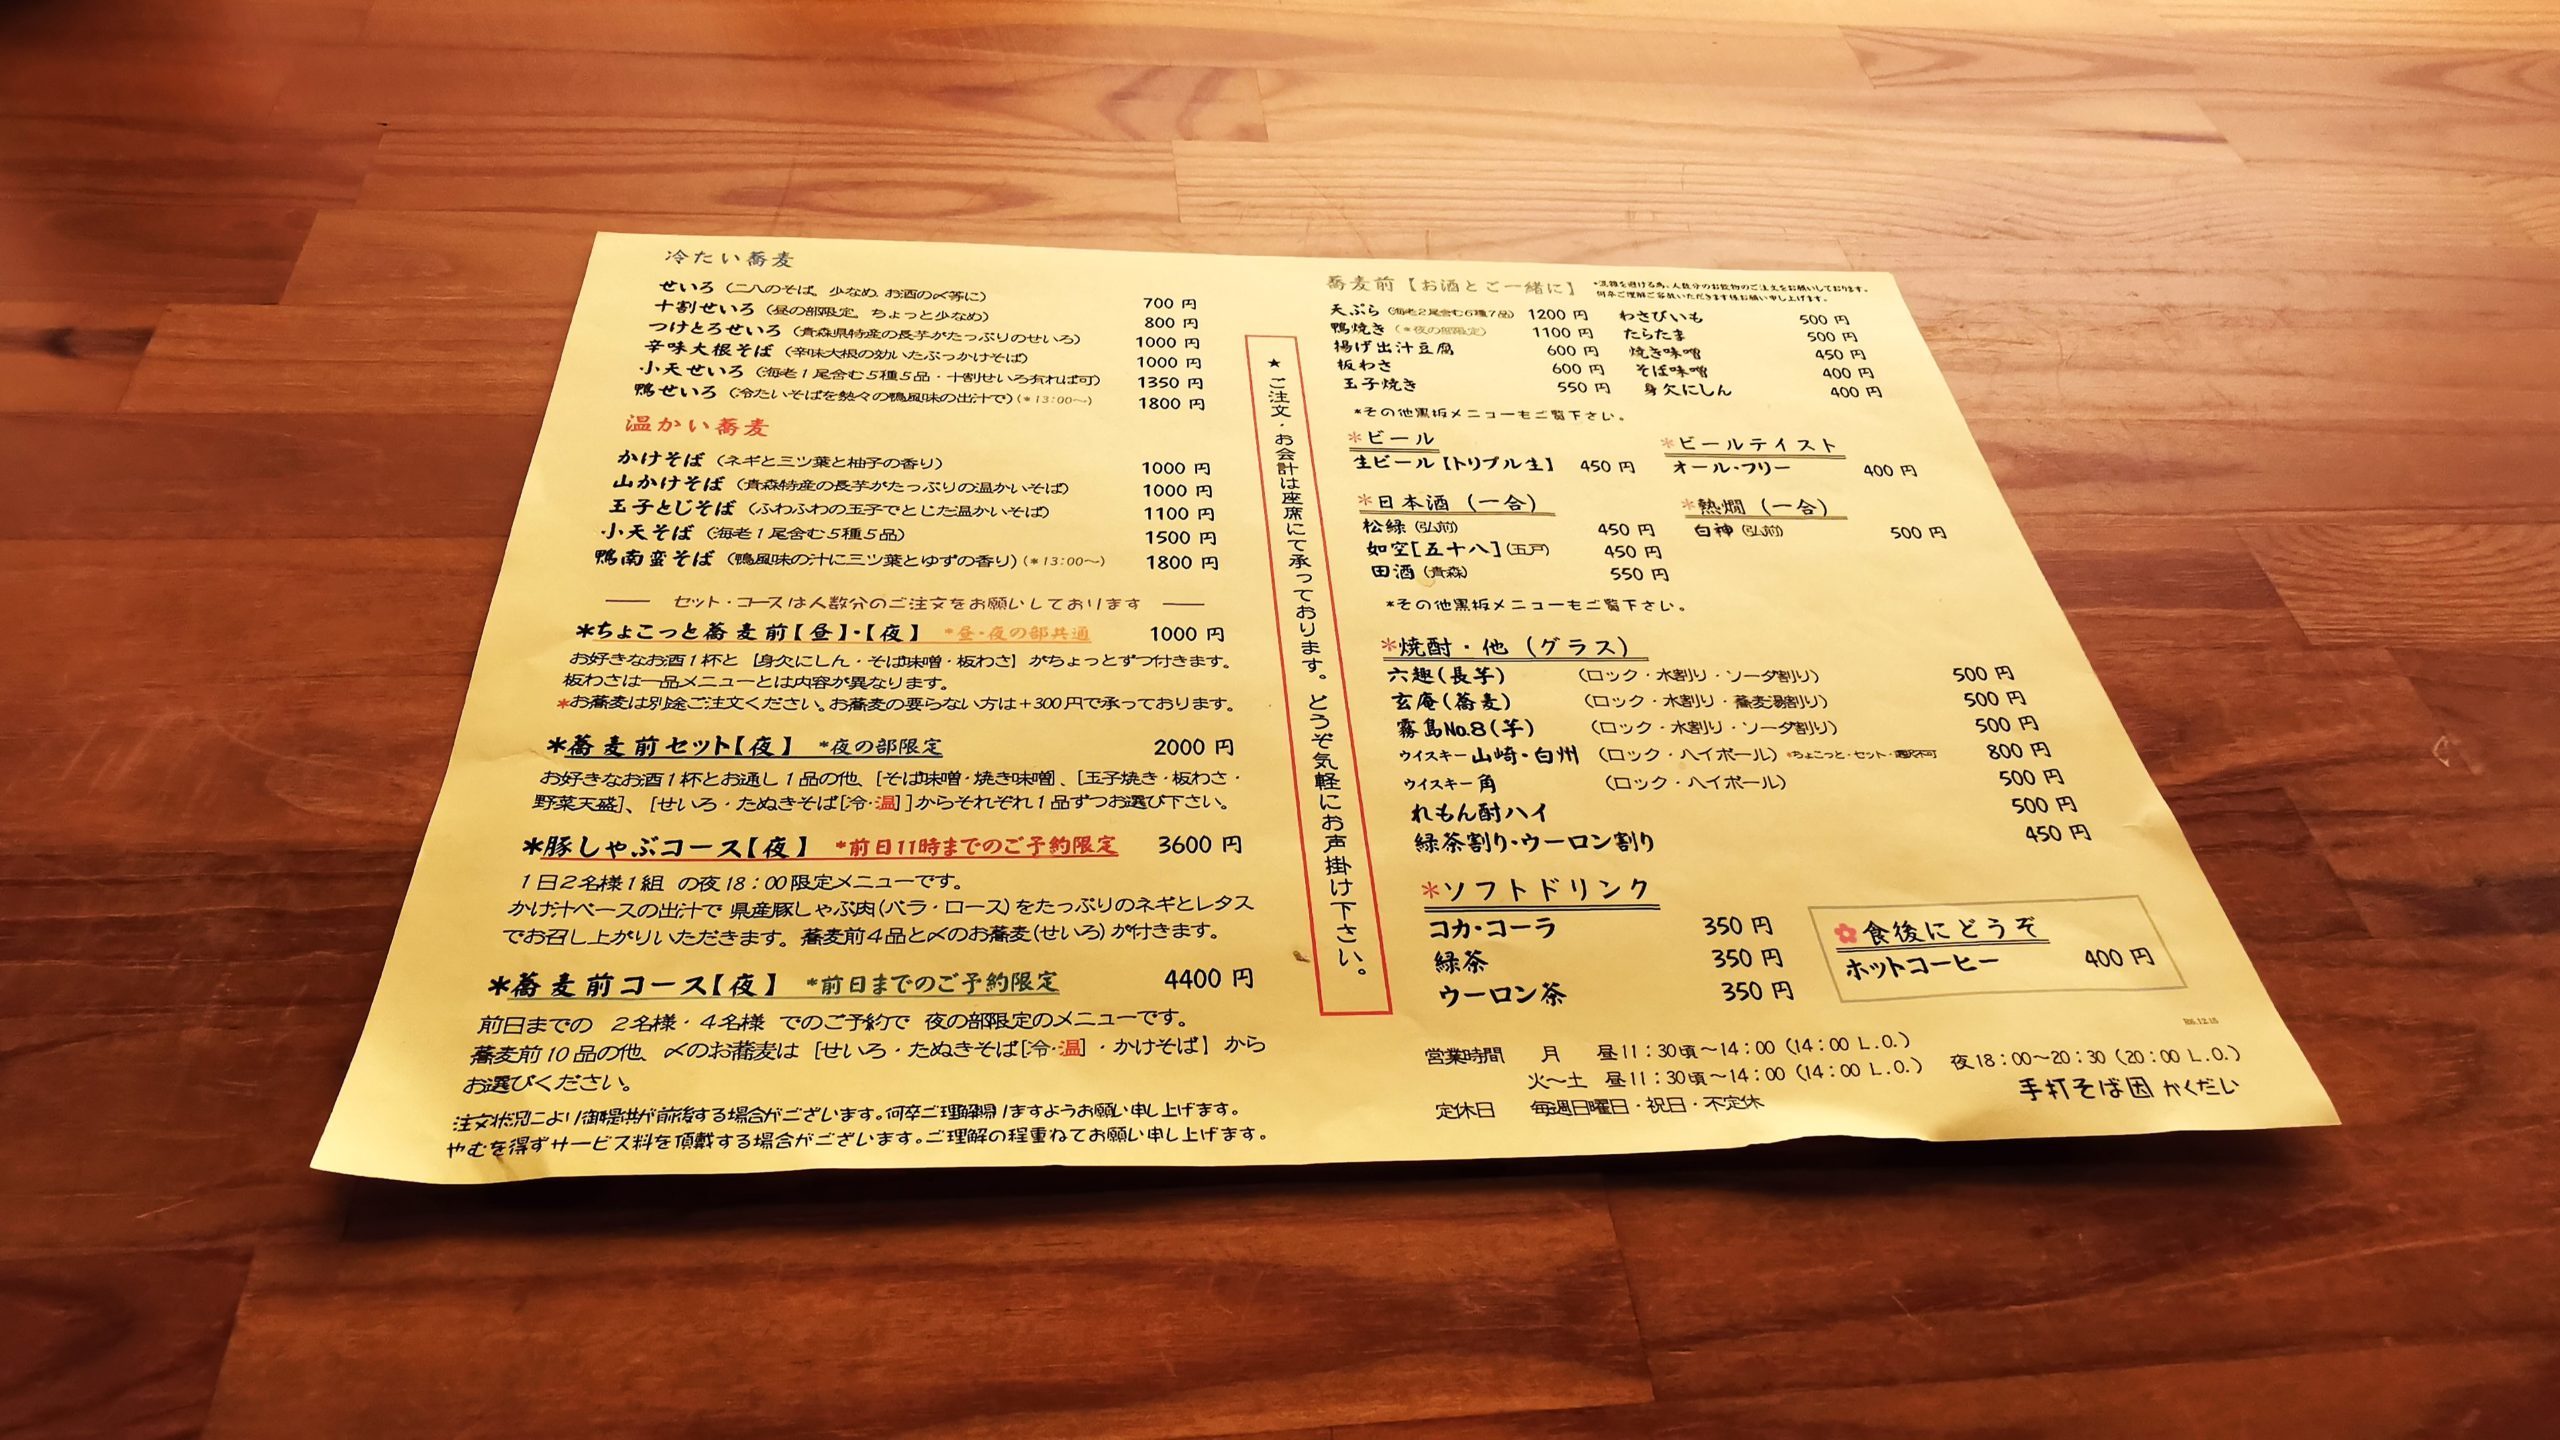 冷たい蕎麦
せいろ (二八のそば、少なめ、お酒の〆等に) 700 円
十割せいろ (昼の部限定、ちょっと少なめ) 800 円
つけとろせいろ (青森県特産の長芋がたっぷりのせいろ) 1000 円
辛味大根そば (辛味大根の効いたぶっかけそば) 1000 円
小天せいろ (海老1尾含む5種5品・十割せいろ有れば可) 1350 円
鴨せいろ (冷たいそばを熱々の鴨風味の出汁で) (*13:00~) 1800 円
温かい蕎麦
かけそば (ネギと三ツ葉と柚子の香り) 1000 円
山かけそば (青森特産の長芋がたっぷりの温かいそば) 1000 円
玉子とじそば (ふわふわの玉子でとじた温かいそば) 1100 円
小天そば (海老1尾含む5種5品) 1500 円
鴨南蛮そば (鴨風味の汁に三ツ葉とゆずの香り) (*13:00~) 1800 円
── セット・コースは人数分のご注文をお願いしております ──
*ちょこっと蕎麦前【昼】・【夜】 *昼・夜の部共通 1000 円
お好きなお酒1杯と [身欠にしん・そば味噌・板わさ] がちょっとずつ付きます。
板わさは一品メニューとは内容が異なります。
*お蕎麦は別途ご注文ください。お蕎麦の要らない方は+300円で承っております。
*蕎麦前セット【夜】 *夜の部限定 2000 円
お好きなお酒1杯とお通し1品の他、[そば味噌・焼き味噌]、[玉子焼き・板わさ・
野菜天盛]、[せいろ・たぬきそば[冷・温]]からそれぞれ1品ずつお選び下さい。
*豚しゃぶコース【夜】 *前日11時までのご予約限定 3600 円
1日2名様1組 の夜18:00限定メニューです。
かけ汁ベースの出汁で 県産豚しゃぶ肉(バラ・ロース)をたっぷりのネギとレタス
でお召し上がりいただきます。蕎麦前4品と〆のお蕎麦(せいろ)が付きます。
*蕎麦前コース【夜】 *前日までのご予約限定 4400 円
前日までの 2名様・4名様 でのご予約で 夜の部限定のメニューです。
蕎麦前10品の他、〆のお蕎麦は [せいろ・たぬきそば[冷・温]・かけそば] から
お選びください。
注文状況により御提供が前後する場合がございます。何卒ご理解賜りますようお願い申し上げます。
やむを得ずサービス料を頂戴する場合がございます。ご理解の程重ねてお願い申し上げます。
★ご注文・お会計は座席にて承っております。どうぞ気軽にお声掛け下さい。
蕎麦前【お酒とご一緒に】 *混雑を避ける為、人数分のお飲物のご注文をお願いしております。
何卒ご理解ご容赦いただきます様お願い申し上げます。
天ぷら (海老2尾含む6種7品) 1200 円 わさびいも 500 円
鴨焼き (*夜の部限定) 1100 円 たらたま 500 円
揚げ出汁豆腐 600 円 焼き味噌 450 円
板わさ 600 円 そば味噌 400 円
玉子焼き 550 円 身欠にしん 400 円
*その他黒板メニューもご覧下さい。
*ビール *ビールテイスト
生ビール【トリプル生】 450 円 オール・フリー 400 円
*日本酒 (一合) *熱燗 (一合)
松緑 (弘前) 450 円 白神 (弘前) 500 円
如空[五十八] (五戸) 450 円
田酒 (青森) 550 円
*その他黒板メニューもご覧下さい。
*焼酎・他 (グラス)
六趣(長芋) (ロック・水割り・ソーダ割り) 500 円
玄庵(蕎麦) (ロック・水割り・蕎麦湯割り) 500 円
霧島No.8(芋) (ロック・水割り・ソーダ割り) 500 円
ウイスキー 山崎・白州 (ロック・ハイボール) *ちょこっと・セット・選択不可 800 円
ウイスキー 角 (ロック・ハイボール) 500 円
れもん酎ハイ 500 円
緑茶割り・ウーロン割り 450 円
*ソフトドリンク
コカ・コーラ 350 円
緑茶 350 円
ウーロン茶 350 円
食後にどうぞ
ホットコーヒー 400 円
R6.12.15
営業時間 月 昼11:30頃~14:00 (14:00 L.O.)
火~土 昼11:30頃~14:00 (14:00 L.O.) 夜18:00~20:30 (20:00 L.O.)
定休日 毎週日曜日・祝日・不定休
手打そば因 かくだい